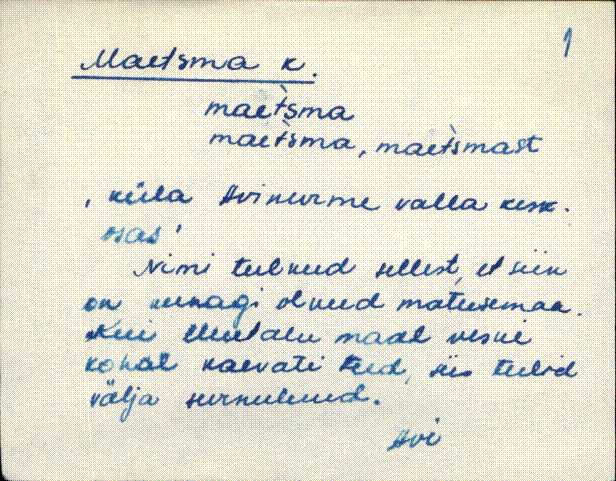 1
Maetsma k.
maet̀sma
maet̀sma, maet̀smast
, küla Avinurme valla kesk-
osas'
Nimi tulnud sellest, et siin
on kunagi olnud matusemaa.
Kui talu maal veski
kohal kaevati teed, siis tulid
välja surnuluud.
Avi